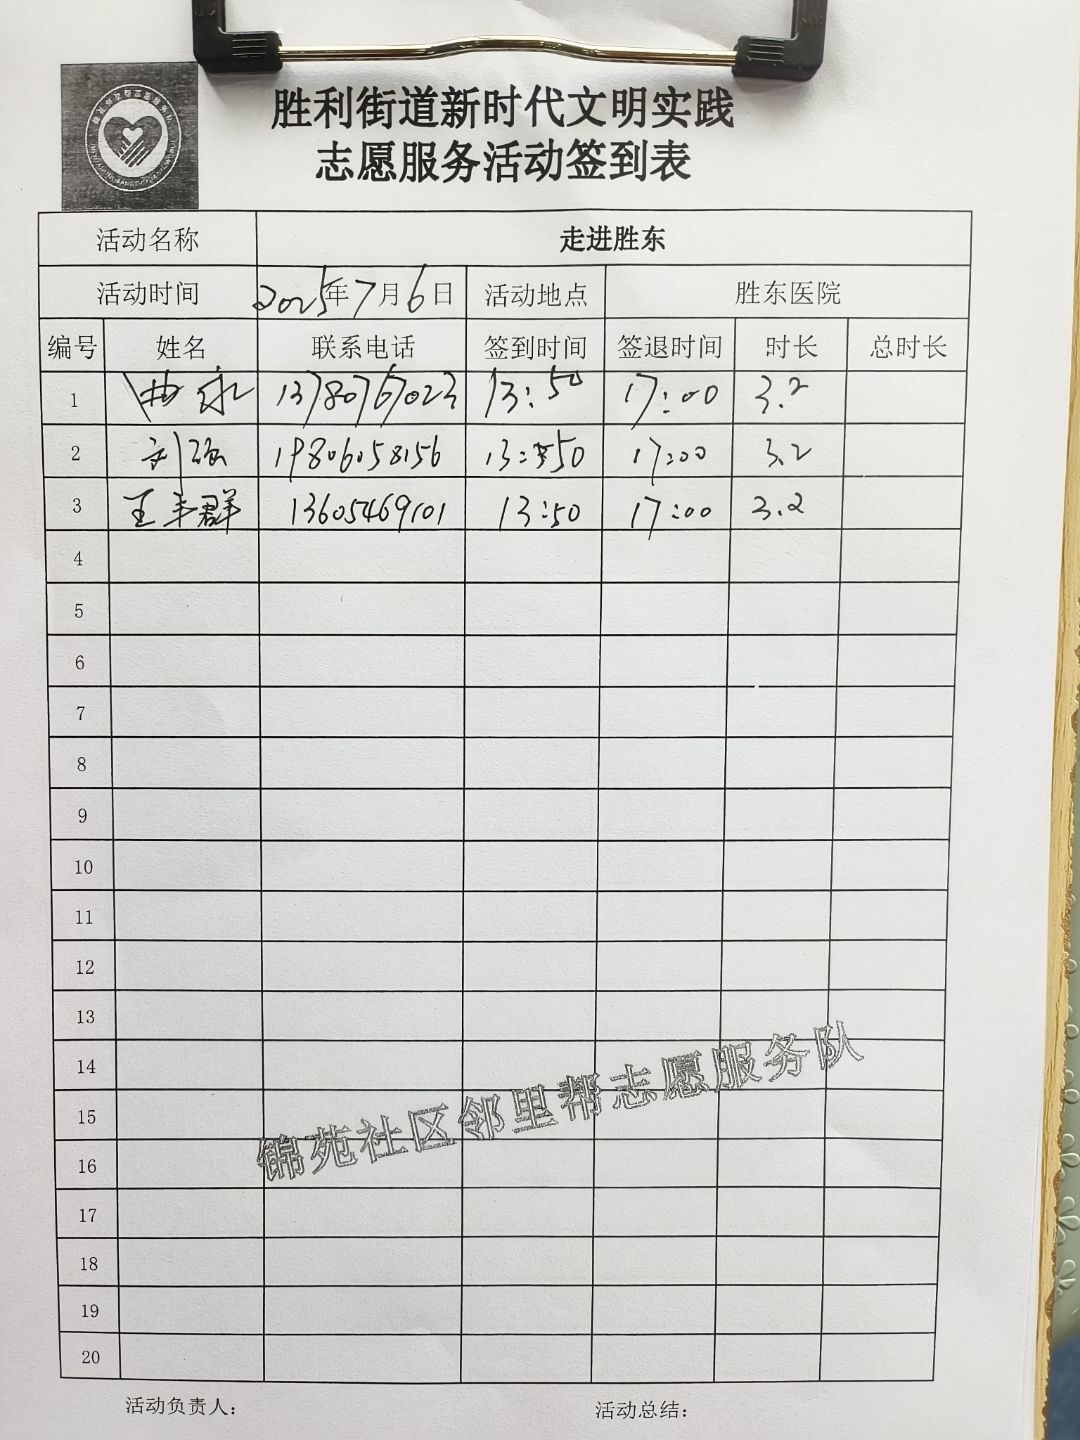 胜利街道新时代文明实践
志愿服务活动签到表
活动名称 走进胜东
活动时间 2025年7月6日 活动地点 胜东医院
编号 姓名 联系电话 签到时间 签退时间 时长 总时长
1 曲永 13780767023 13:50 17:00 3.2
2 刘强 19806058156 13:50 17:00 3.2
3 王丰群 13605469101 13:50 17:00 3.2
4
5
6
7
8
9
10
11
12
13
14
15
16
17
18
19
20
锦苑社区邻里帮志愿服务队
活动负责人： 活动总结：